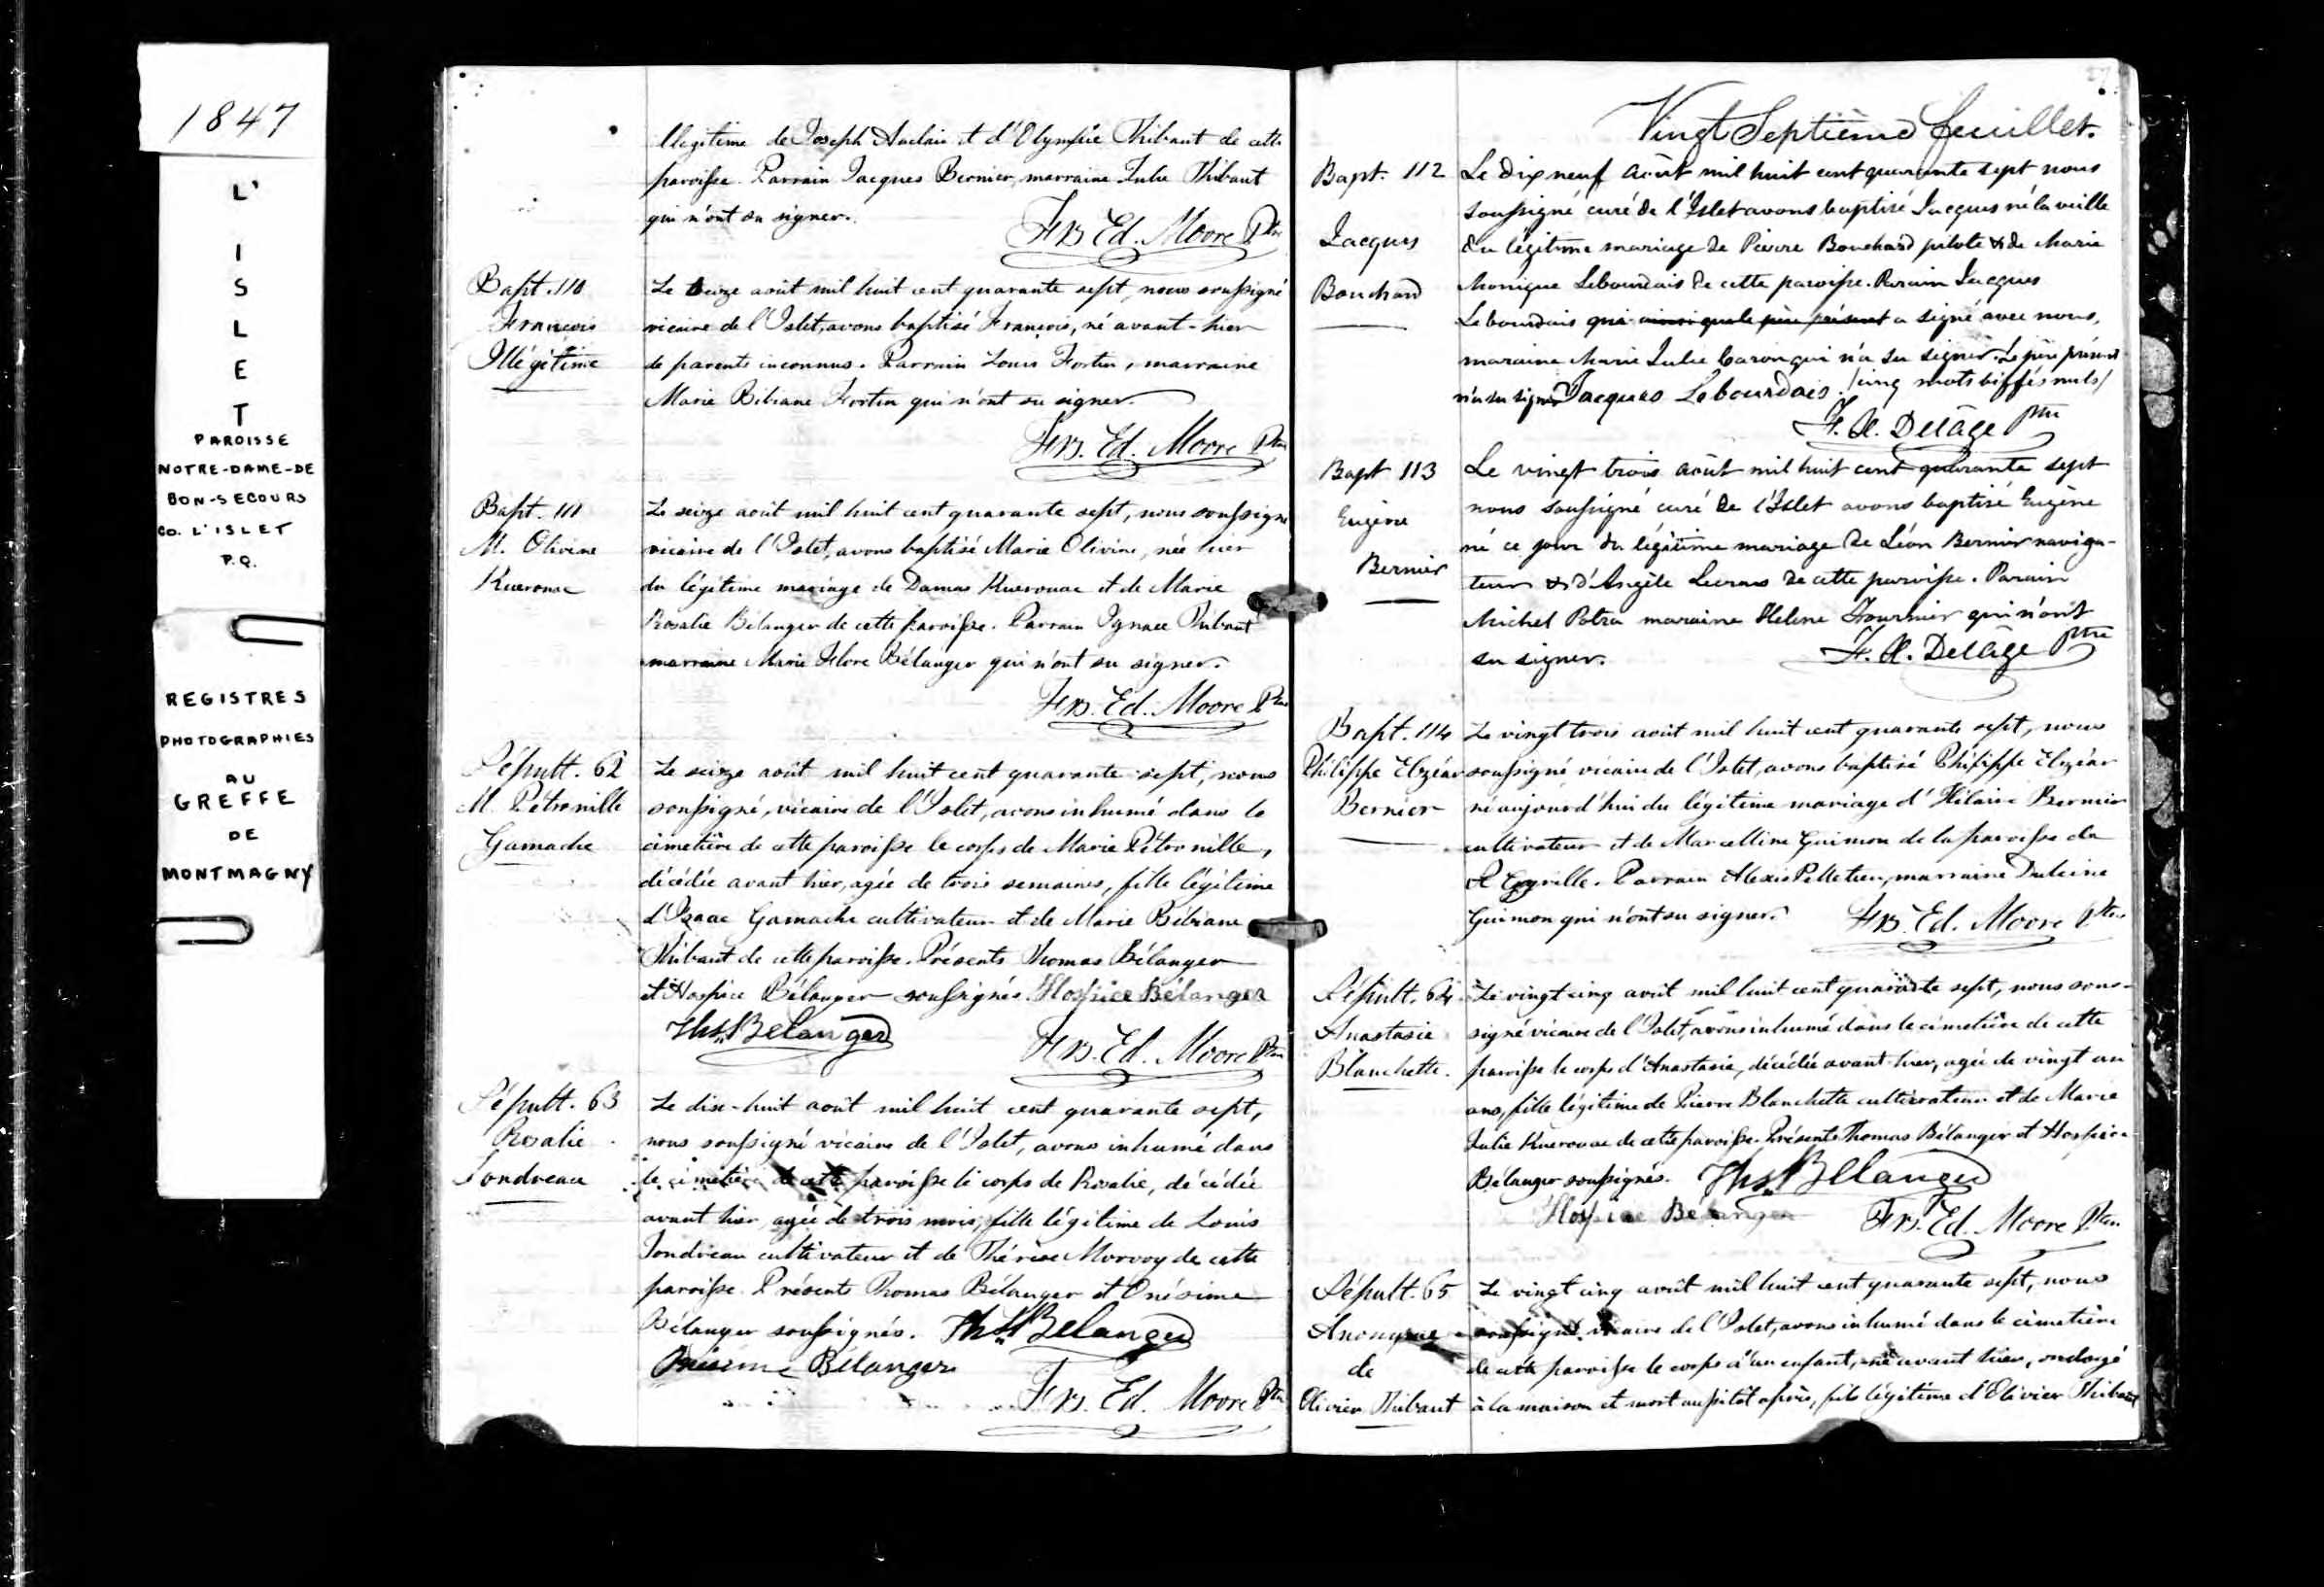 1847
L'
I
S
L
E
T
PAROISSE
NOTRE-DAME-DE
BON-SECOURS
CO. L'ISLET
P.Q.
REGISTRES
PHOTOGRAPHIES
AU
GREFFE
DE
MONTMAGNY
llegitime de Joseph Auclair et d'Olympie Thibaut de cette
paroisse. Parrain Jacques Bernier, marraine Julie Thibaut
qui n'ont su signer.
Frs Ed. Moore Ptre
Bapt. 110
François
Illégitime
Le seize août mil huit cent quarante sept, nous soussigné
vicaire de l'Islet, avons baptisé François, né avant-hier
de parents inconnus. Parrain Louis Fortin, marraine
Marie Bibiane Fortin qui n'ont su signer.
Frs. Ed. Moore Ptre
Bapt. 111
M. Olivine
Kuerouac
Le seize août mil huit cent quarante sept, nous soussigné
vicaire de l'Islet, avons baptisé Marie Olivine, née hier
du légitime mariage de Damas Kuerouac et de Marie
Rosalie Bélanger de cette paroisse. Parrain Ignace Thibaut
marraine Marie Flore Bélanger qui n'ont su signer.
Frs. Ed. Moore Ptre
Sépult. 62
M. Pétronille
Gamache
Le seize août mil huit cent quarante sept, nous
soussigné, vicaire de l'Islet, avons inhumé dans le
cimetière de cette paroisse le corps de Marie Pétronille,
décédée avant hier, agée de trois semaines, fille légitime
d'Izaac Gamache cultivateur et de Marie Bibiane
Thibaut de cette paroisse. Présents Thomas Bélanger
et Hospice Bélanger soussignés. Hospice Bélanger
Ths Belanger
Frs. Ed. Moore Ptre
Sépult. 63
Rosalie
Jondreau
Le dix-huit août mil huit cent quarante sept,
nous soussigné vicaire de l'Islet, avons inhumé dans
le cimetière de cette paroisse le corps de Rosalie, décédée
avant hier, agée de trois mois, fille légitime de Louis
Jondreau cultivateur et de Thérèse Morvoy de cette
paroisse. Présents Thomas Bélanger et Onésime
Bélanger soussignés. Ths Belanger
Onésime Bélanger
Frs. Ed. Moore Ptre
27
Vingt Septième feuillet.
Bapt. 112
Jacques
Bouchard
Le Dix neuf Août mil huit cent quarante sept nous
soussigné curé de l'Islet avons baptisé Jacques né la veille
du légitime mariage de Pierre Bouchard pilote & de Marie
Monique Lebourdais de cette paroisse. Parain Jacques
Lebourdais qui ainsi que le père présent a signé avec nous,
maraine Marie Julie Caron qui n'a su signer. Le père présent
n'a su signer Jacques Lebourdais. /cinq mots biffés nuls/
F. X. Delâge Ptre
Bapt 113
Eugène
Bernier
Le vingt trois Août mil huit cent quarante sept
nous soussigné curé de l'Islet avons baptisé Eugène
né ce jour du légitime mariage de Léon Bernier naviga-
teur & d'Angèle de cette paroisse. Parain
Michel Potra maraine Helene Fournier qui n'ont
su signer.
F. X. Delâge Ptre
Bapt. 114
Philippe Elzéar
Bernier
Le vingt trois août mil huit cent quarante sept, nous
soussigné vicaire de l'Islet, avons baptisé Philippe Elzéar
né aujourd'hui du légitime mariage d'Hilaire Bernier
cultivateur et de Marcelline Guimon de la paroisse du
Parrain Alexis Pelletier, marraine Dulcine
Guimon qui n'ont su signer.
Frs. Ed. Moore Ptre
Sépult. 64
Anastasie
Blanchette.
Le vingt cinq août mil huit cent quarante sept, nous sous-
signé vicaire de l'Islet, avons inhumé dans le cimetière de cette
paroisse le corps d'Anastasie, décédée avant-hier, agée de vingt un
ans, fille légitime de Pierre Blanchette cultivateur et de Marie
Julie Kuerouac de cette paroisse. Présents Thomas Bélanger et Hospice
Bélanger soussignés. Ths Belanger
Hospice Bélanger
Frs. Ed. Moore Ptre
Sépult. 65
Anonyme
de
Olivier Thibaut
Le vingt cinq août mil huit cent quarante sept, nous
soussigné vicaire de l'Islet, avons inhumé dans le cimetière
de cette paroisse le corps d'un enfant, né avant hier, ondoyé
à la maison et mort aussitôt après, fils légitime d'Olivier Thibaut